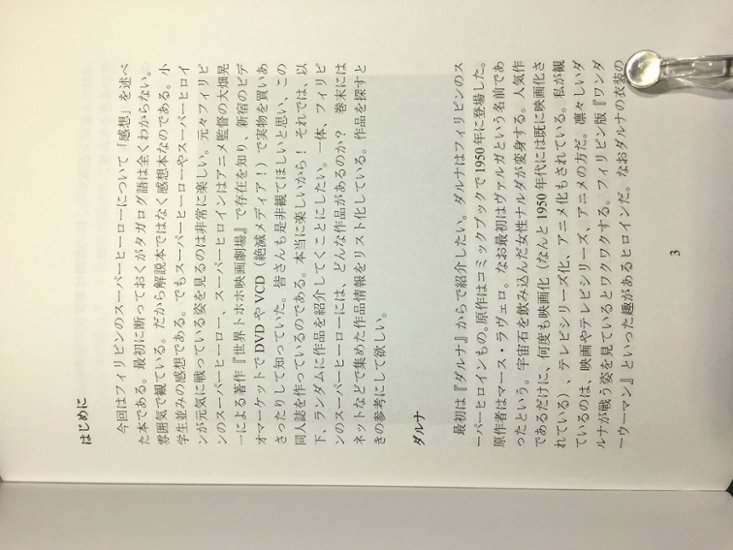 はじめに
今回はフィリピンのスーパーヒーローについて「感想」を述べ
た本である。最初に断っておくがタガログ語は全くわからない。
雰囲気で観ている。だから解説本ではなく感想本なのである。小
学生並みの感想である。でもスーパーヒーローやスーパーヒロイ
ンが元気に戦っている姿を見るのは非常に楽しい。元々フィリピ
ンのスーパーヒーロー、スーパーヒロインはアニメ監督の大畑晃
一による著作『世界トホホ映画劇場』で存在を知り、新宿のビデ
オマーケットでDVDやVCD（絶滅メディア！）で実物を買いあ
さったりして知っていた。皆さんも是非観てほしいと思い、この
同人誌を作っているのである。本当に楽しいから！それでは、以
下、ランダムに作品を紹介してくことにしたい。一体、フィリピ
ンのスーパーヒーローには、どんな作品があるのか？　巻末には
ネットなどで集めた作品情報をリスト化している。作品を探すと
きの参考にして欲しい。
ダルナ
最初は『ダルナ』からで紹介したい。ダルナはフィリピンのス
ーパーヒロインもの。原作はコミックブックで1950年に登場した。
原作者はマース・ラヴェロ。なお最初はヴァルガという名前であ
ったという。宇宙石を飲み込んだ女性ナルダが変身する。人気作
であるだけに、何度も映画化（なんと1950年代には既に映画化さ
れている）、テレビシリーズ化、アニメ化もされている。私が観
ているのは、映画やテレビシリーズ、アニメの方だ。凛々しいダ
ルナが戦う姿を見ているとワクワクする。フィリピン版『ワンダ
ーウーマン』といった趣があるヒロインだ。なおダルナの衣装の
3